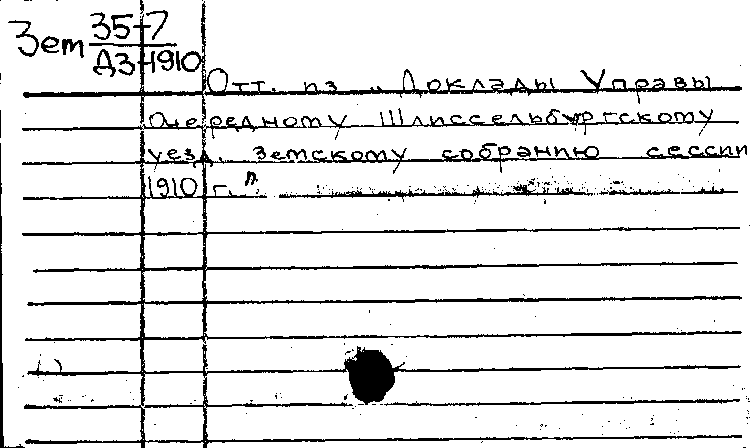 Зем 35-7
Д3-1910
Отт. из „Доклады Управы
очередному Шлиссельбургскому
уезд. земскому собранию сессии
1910 г."